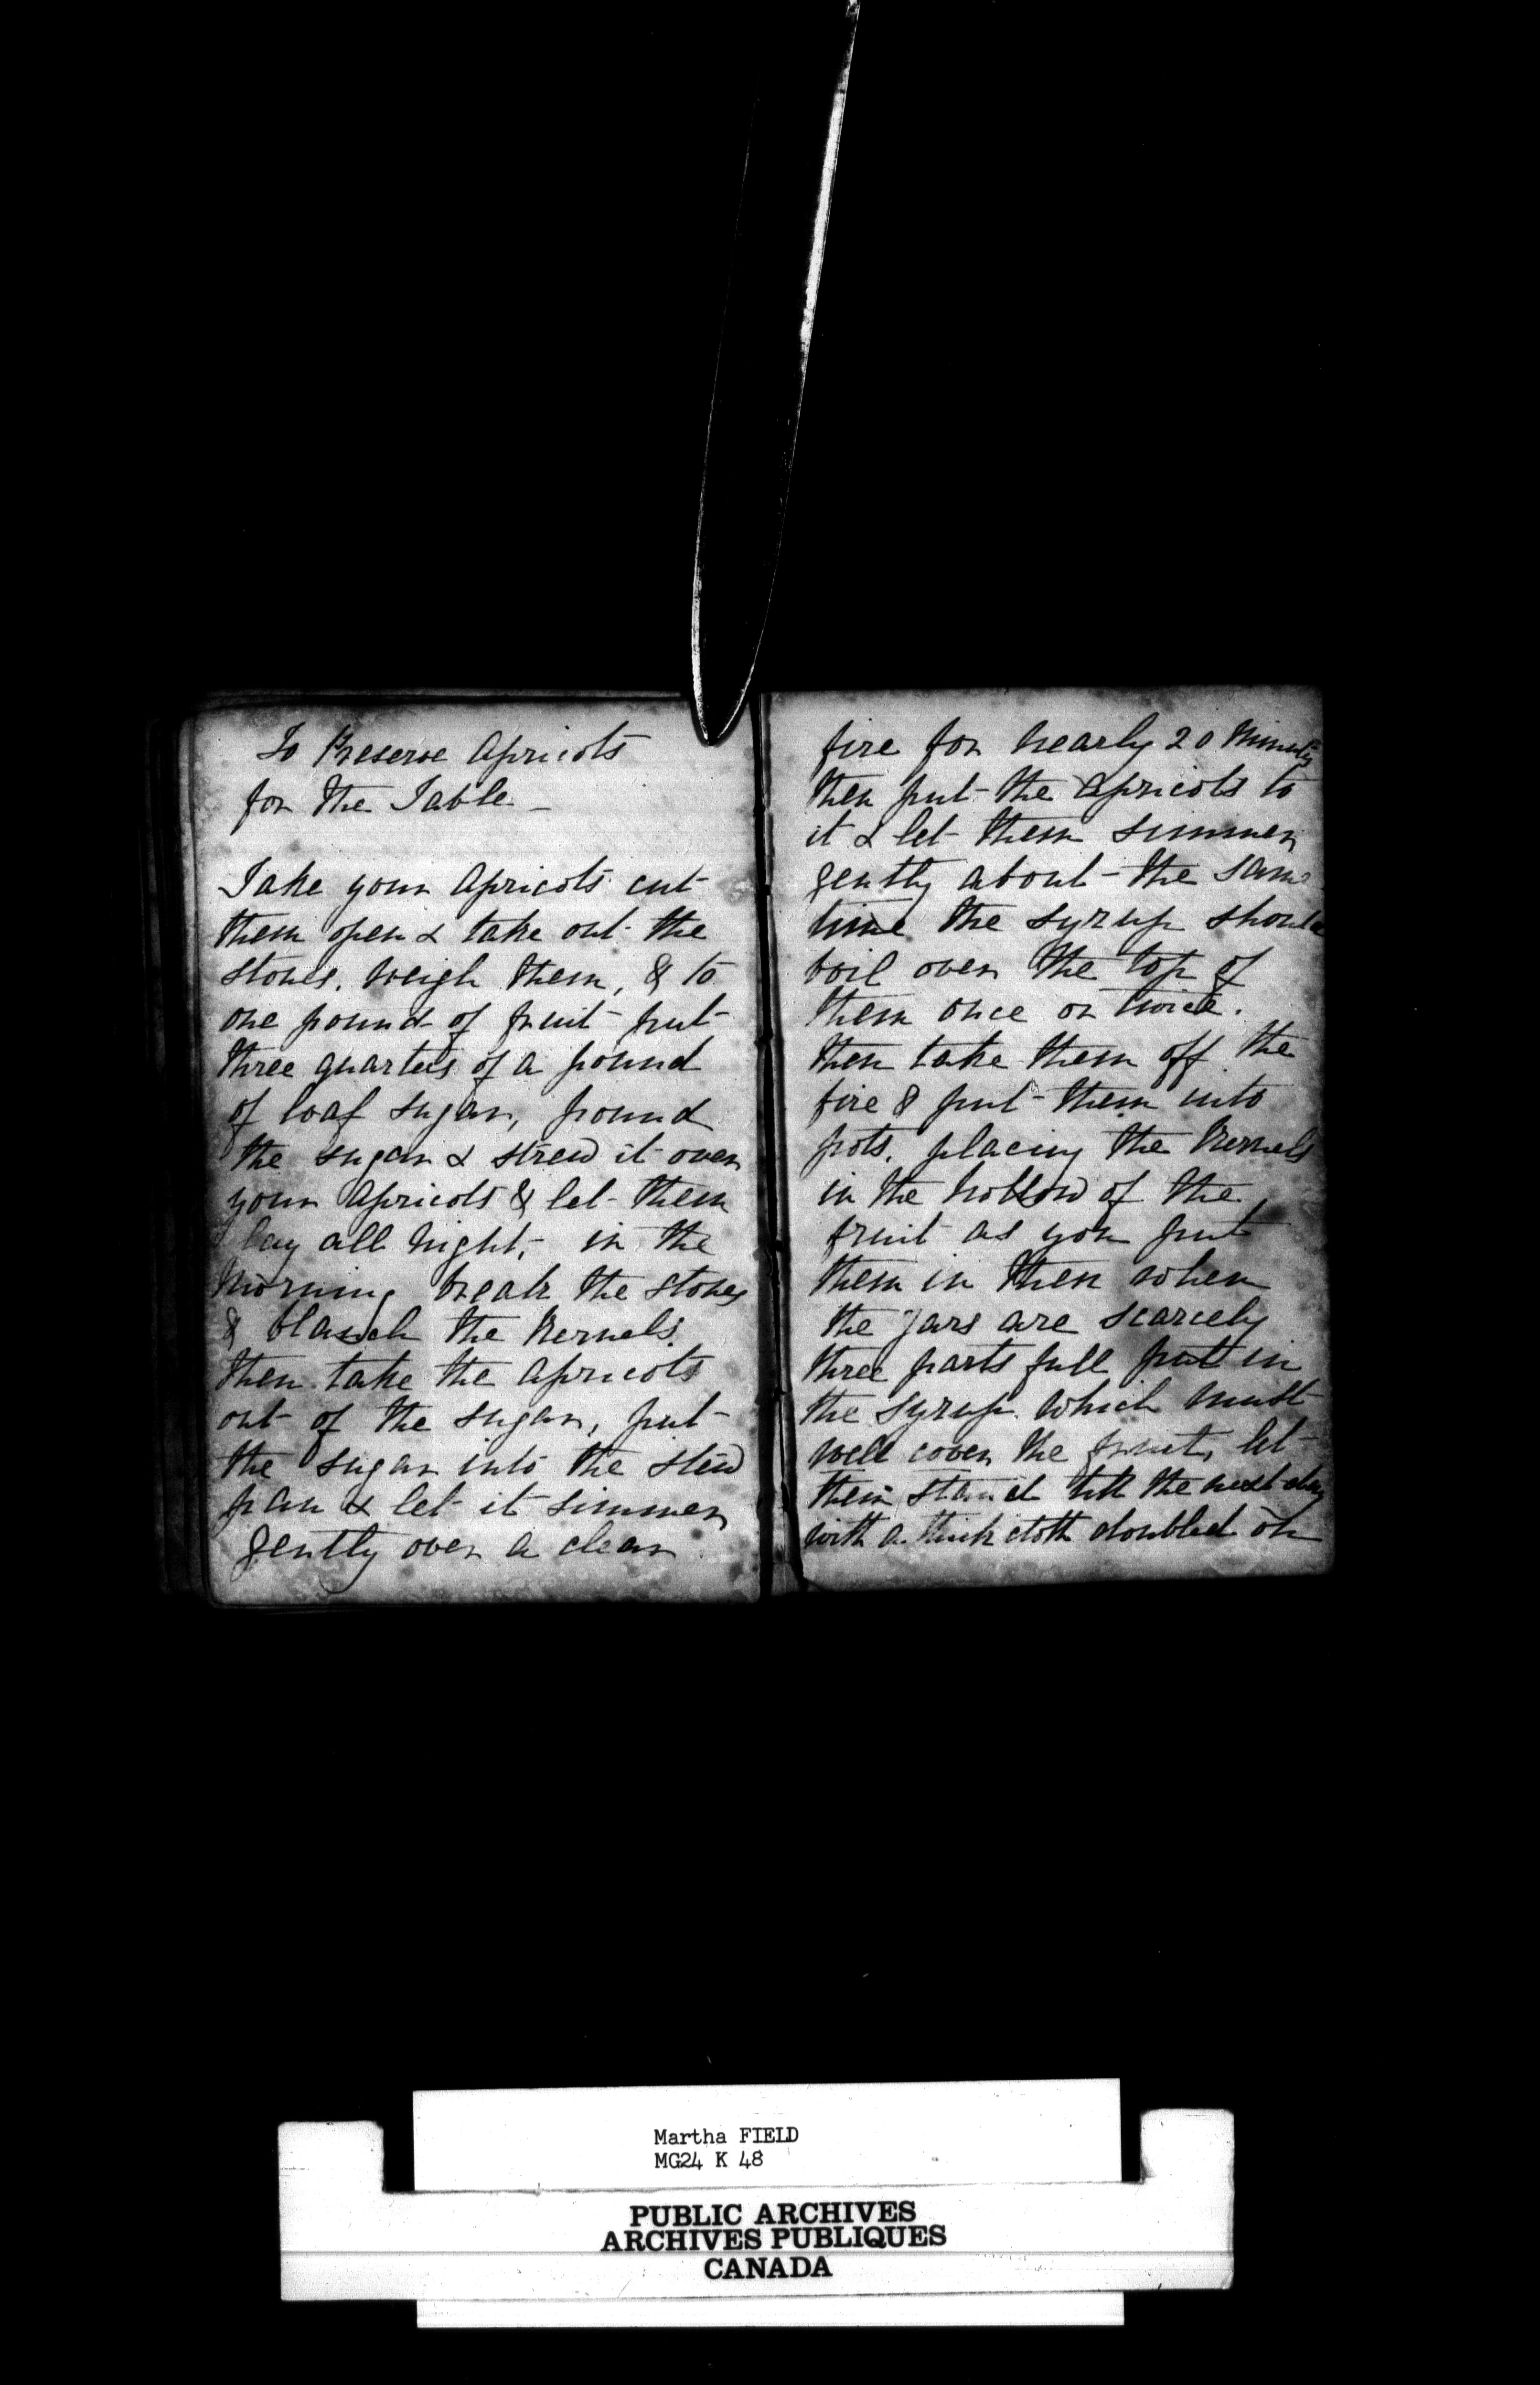 To Preserve Apricots
for the Table –
Take your Apricots cut
them open & take out the
stones, weigh them, & to
one pound of fruit put
three quarters of a pound
of loaf sugar, pound
the sugar & strew it over
your Apricots & let them
lay all night, – in the
morning break the stones
& blanch the kernels.
then take the apricots
out of the sugar, put
the sugar into the stew
pan & let it simmer
gently over a clear
fire for nearly 20 minutes
then put the apricots to
it & let them simmer
gently about the same
time the syrup should
boil over the top of
them once or twice.
then take them off the
fire & put them into
pots, placing the kernels
in the hollow of the
fruit as you put
them in then when
the jars are scarcely
three parts full put in
the syrup which must
well cover the fruit, let
them stand till the next day
with a thick cloth doubled on
Martha FIELD
MG24 K 48
PUBLIC ARCHIVES
ARCHIVES PUBLIQUES
CANADA